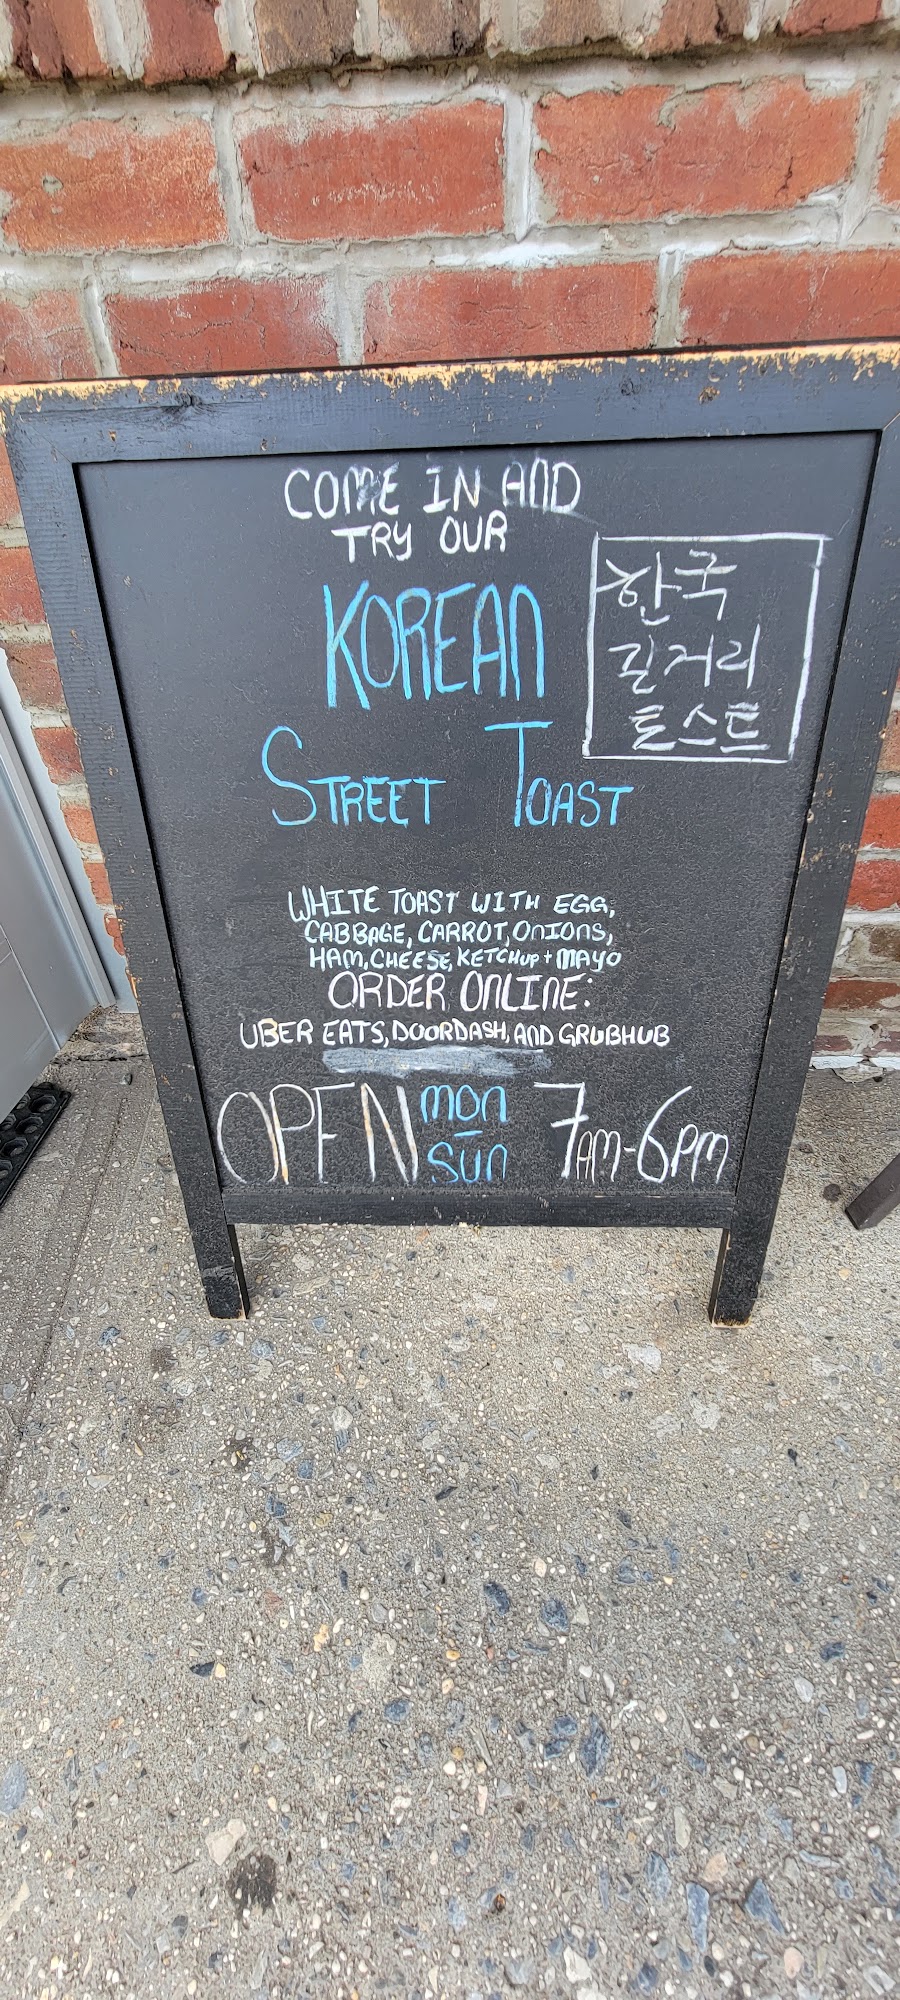 COME IN AND
TRY OUR
KOREAN
STREET TOAST
한국
길거리
토스트
WHITE TOAST WITH EGG,
CABBAGE, CARROT, ONIONS,
HAM, CHEESE, KETCHUP + MAYO
ORDER ONLINE:
UBER EATS, DOORDASH, AND GRUBHUB
OPEN MON - SUN 7AM-6PM